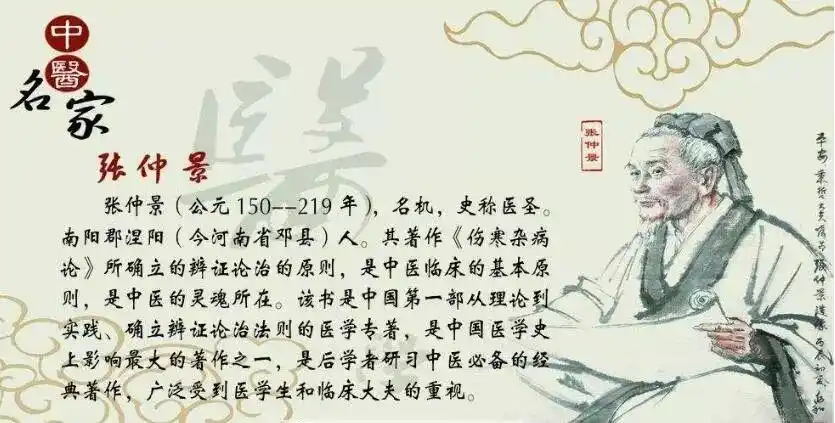 中醫
名家
张仲景
张仲景（公元150--219年），名机，史称医圣。
南阳郡涅阳（今河南省邓县）人。其著作《伤寒杂病
论》所确立的辨证论治的原则，是中医临床的基本原
则，是中医的灵魂所在。该书是中国第一部从理论到
实践、确立辨证论治法则的医学专著，是中国医学史
上影响最大的著作之一，是后学者研习中医必备的经
典著作，广泛受到医学生和临床大夫的重视。
醫
张仲景